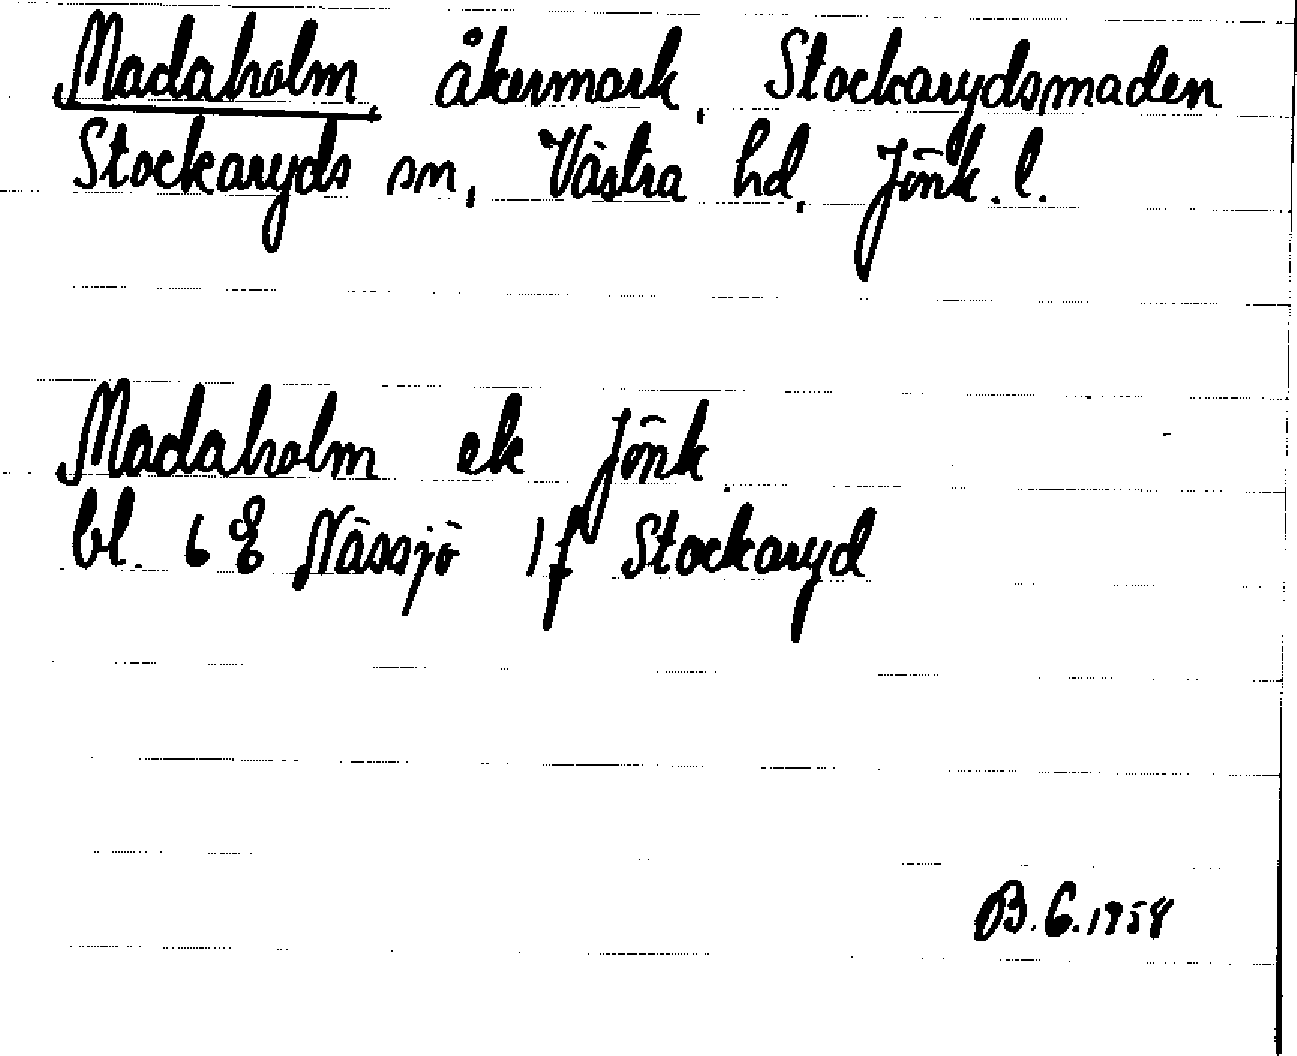 Madaholm, åkermark, Stockarydsmaden
Stockaryds sn, Västra hd, Jönk. l.
Madaholm ek Jönk.
bl. 6 E Nässjö 1 f Stockaryd
B. G. 1958